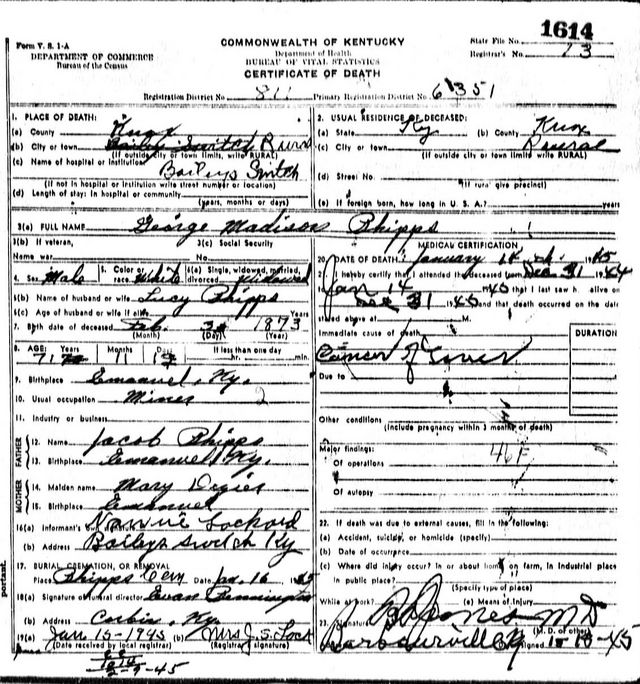 1614
Form V. S. 1-A
DEPARTMENT OF COMMERCE
Bureau of the Census
COMMONWEALTH OF KENTUCKY
Department of Health
BUREAU OF VITAL STATISTICS
CERTIFICATE OF DEATH
State File No.
Registrar's No. 13
Registration District No. 811 Primary Registration District No. 6351
1. PLACE OF DEATH:
(a) County Knox
(b) City or town Baileys Switch Rural
(If outside city or town limits, write RURAL)
(c) Name of hospital or institution:
Baileys Switch
(If not in hospital or institution write street number or location)
(d) Length of stay: In hospital or community
(years, months or days)
2. USUAL RESIDENCE OF DECEASED:
(a) State Ky (b) County Knox
(c) City or town Rural
(If outside city or town limits write RURAL)
(d) Street No.
(If rural give precinct)
(e) If foreign born, how long in U. S. A.? years
3(a) FULL NAME George Madison Phipps
3(b) If veteran,
Name war
3(c) Social Security
No.
4. Sex Male 5. Color or race White 6(a) Single, widowed, married, divorced Widowed
6(b) Name of husband or wife Lucy Phipps
6(c) Age of husband or wife if alive Years
7. Birth date of deceased Feb. 1873
(Month) (Day) (Year)
8. AGE: Years Months Days If less than one day
71 11 hr. min.
9. Birthplace Emanuel, Ky.
10. Usual occupation Miner 2
11. Industry or business
FATHER
12. Name Jacob Phipps
13. Birthplace Emanuel, Ky.
MOTHER
14. Maiden name Mary
15. Birthplace Emanuel
16(a) Informant's Nannie Lockard
(b) Address Baileys Switch Ky
17. BURIAL, CREMATION, OR REMOVAL
Place Phipps Cem Date Jan. 16 1945
18(a) Signature of funeral director Evan Pennington
(b) Address Corbin, Ky.
19(a) Jan 15-1945 (b) Mrs J. S. Lock
(Date received by local registrar) (Registrar's signature)
1614
2-9-45
MEDICAL CERTIFICATION
20. DATE OF DEATH January 14 th. 1945
I hereby certify that I attended the deceased from Dec 31 1944
Jan 14 1945 that I last saw h alive on
Dec 31 1945 and that death occurred on the date
stated above at M.
Immediate cause of death
DURATION
Cancer of Liver
Due to
Other conditions
(Include pregnancy within 3 months of death)
46 F
Major findings:
Of operations
Of autopsy
22. If death was due to external causes, fill in the following:
(a) Accident, suicide, or homicide (specify)
(b) Date of occurrence
(c) Where did injury occur? In or about home, on farm, in industrial place
in public place?
(Specify type of place)
While at work? (e) Means of injury
23. Signature Jones M D
(M. D. or other)
Barbourville Ky signed 1-15-45
portant.